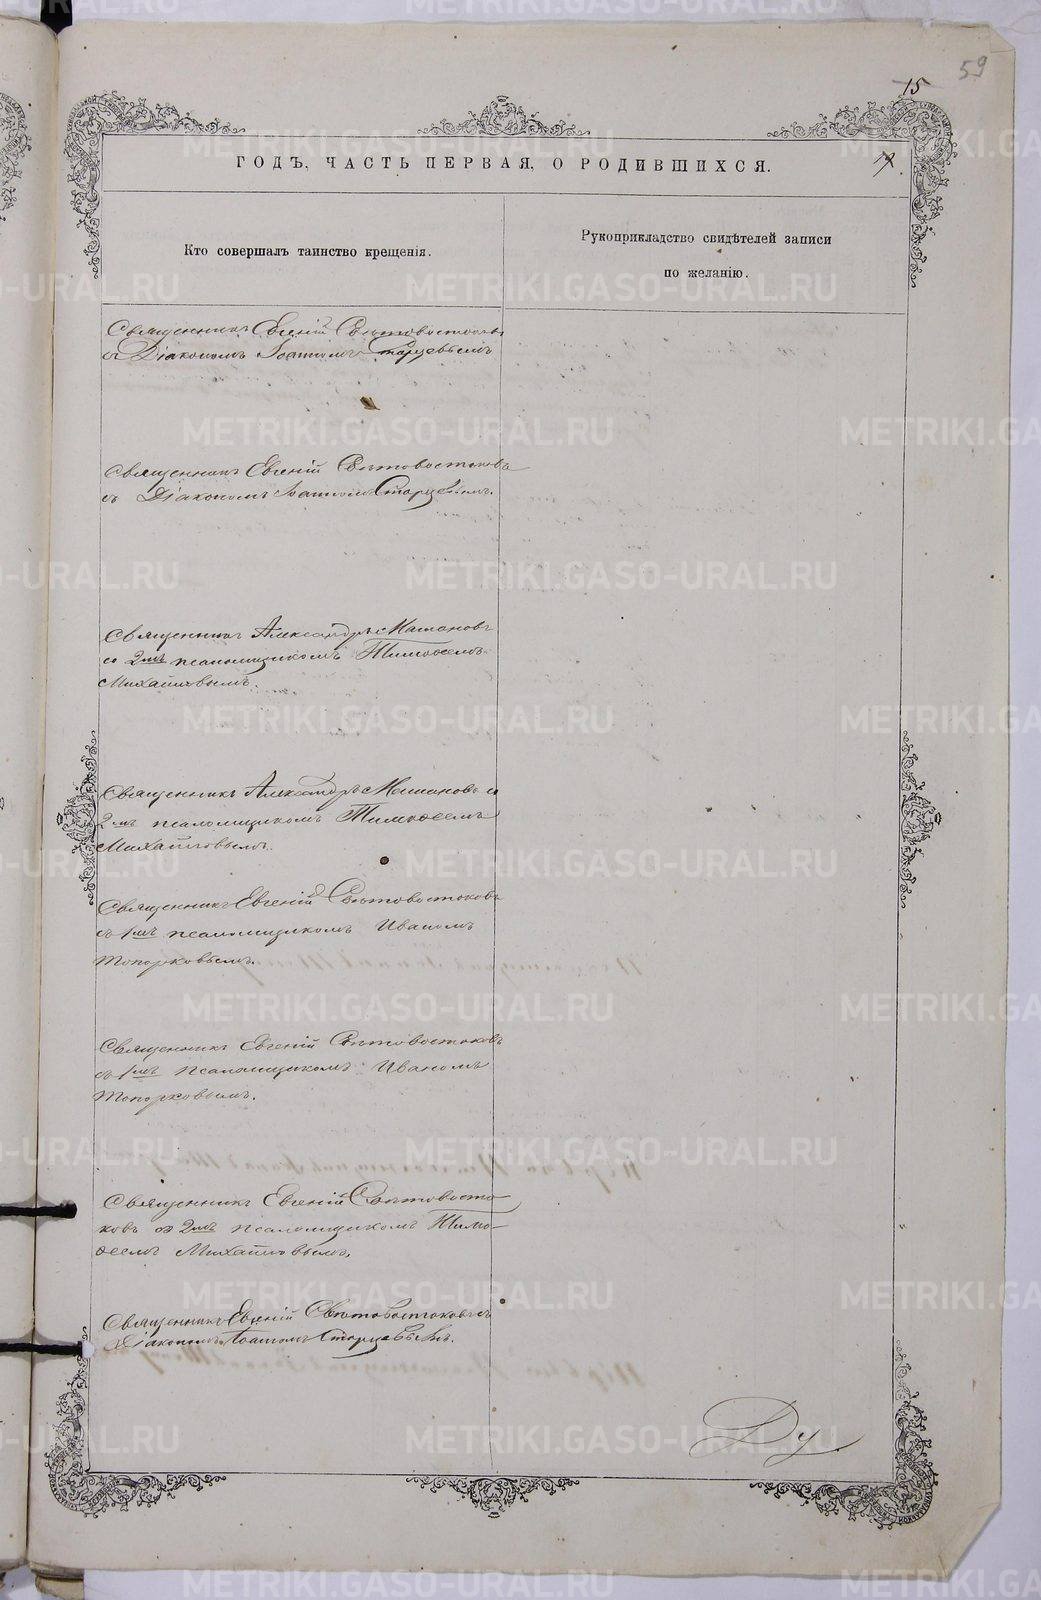 59
15
ГОДЪ, ЧАСТЬ ПЕРВАЯ, О РОДИВШИХСЯ.
Кто совершалъ таинство крещенія.
Рукоприкладство свидѣтелей записи
по желанію.
Священникъ Евгеній Свѣтовостоковъ
съ Діакономъ Іоанномъ Старцевымъ
Священникъ Евгеній Свѣтовостоковъ
съ Діакономъ Іоанномъ Старцевымъ.
Священникъ Александръ
со 2мъ псаломщикомъ Тимоѳеемъ
Михайловымъ.
Священникъ Александръ со
2мъ псаломщикомъ Тимоѳеемъ
Михайловымъ.
Священникъ Евгеній Свѣтовостоковъ
съ 1мъ псаломщикомъ Иваномъ
Топорковымъ.
Священникъ Евгеній Свѣтовостоковъ
съ 1мъ псаломщикомъ Иваномъ
Топорковымъ.
Священникъ Евгеній Свѣтовосто-
ковъ со 2мъ псаломщикомъ Тимо-
ѳеемъ Михайловымъ.
Священникъ Евгеній Свѣтовостоковъ съ
Діакономъ Іоанномъ Старцевымъ.
Ду
METRIKI.GASO-URAL.RU